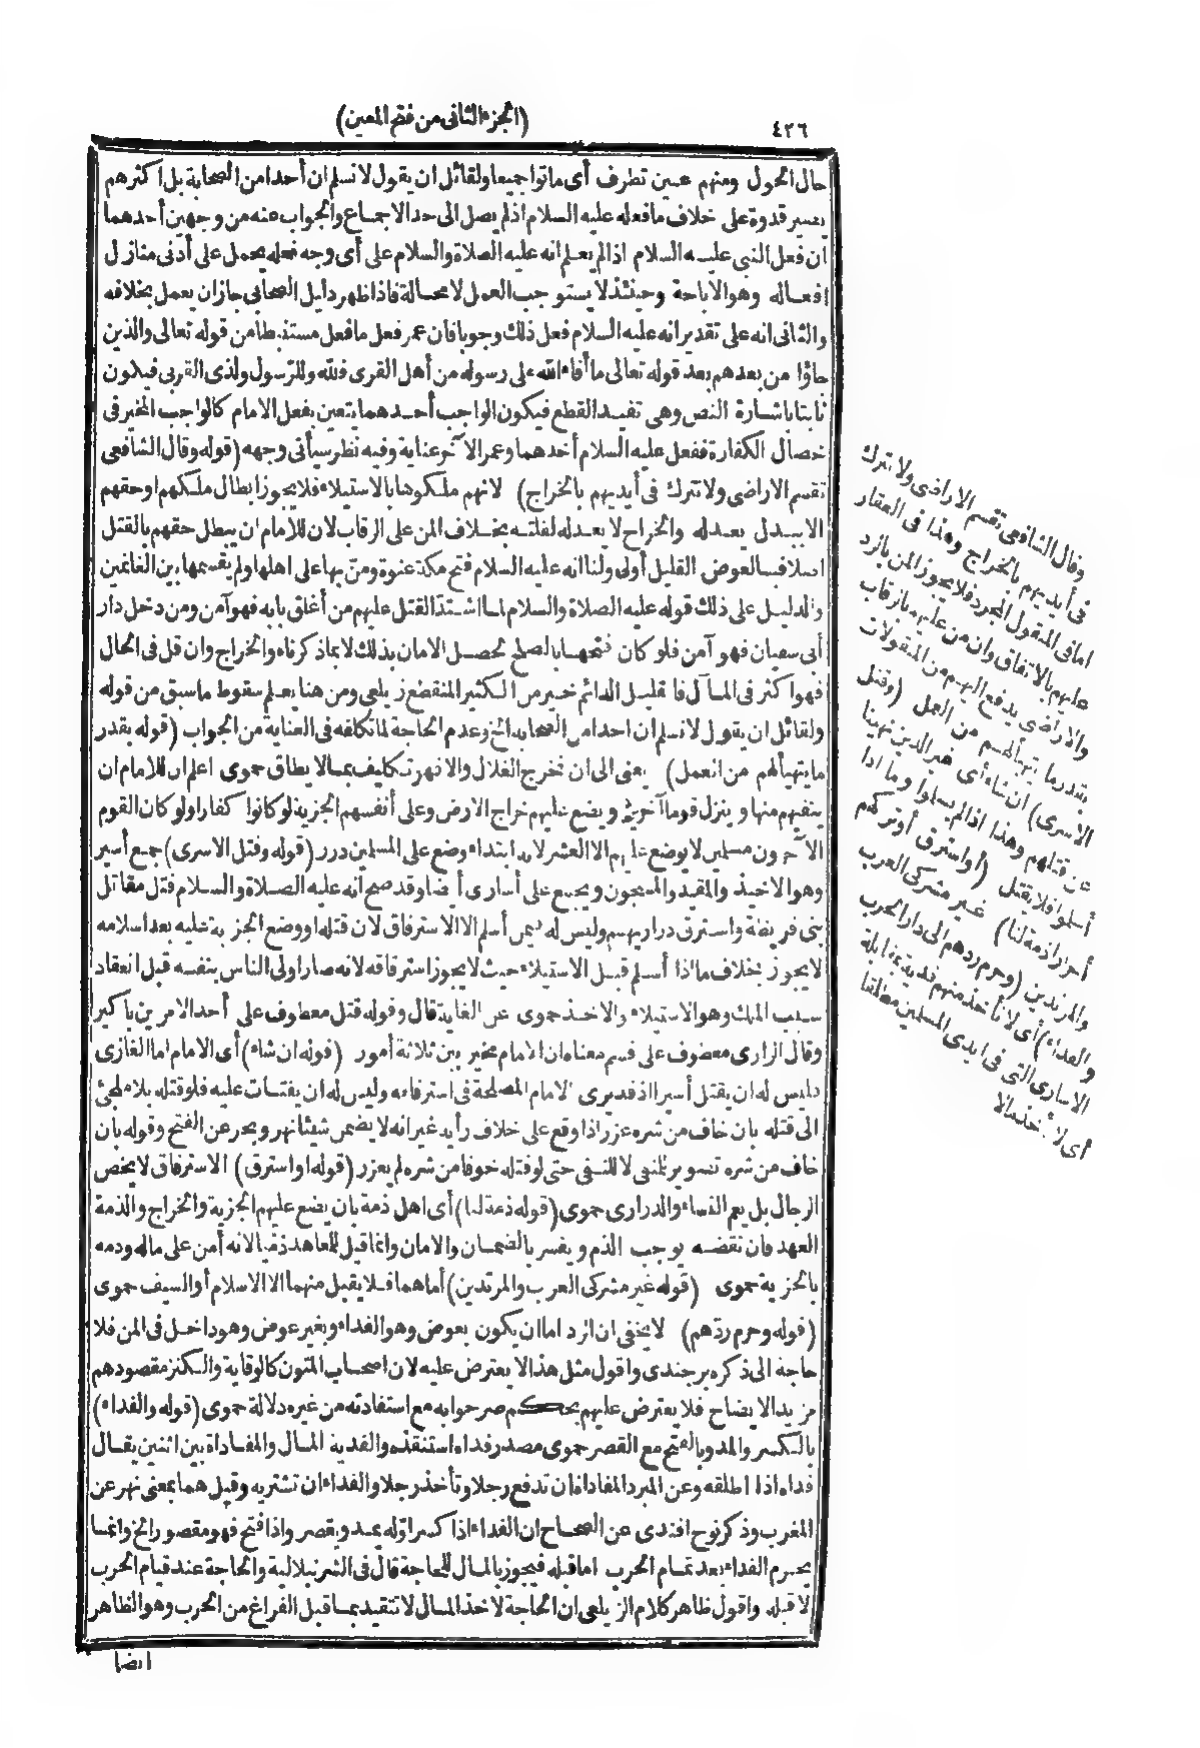 ٤٢٦
(الجزء الثانى من فتح المعين)
حال الحول ومنهم عين تطرف أى ماتوا جميعا ولقائل ان يقول لا نسلم ان أحدا من الصحابة بل اكثرهم
يصير قدوة على خلاف ما فعله عليه السلام اذ لم يصل الى حد الاجماع والجواب عنه من وجهين أحدهما
ان فعل النبى عليه السلام اذا لم يعلم انه عليه الصلاة والسلام على أى وجه فعله يحمل على أدنى منازل
افعاله وهو الاباحة وحينئذ لا يستوجب العمل لا محالة فاذا ظهر دليل الصحابى جاز ان يعمل بخلافه
والثانى انه على تقدير انه عليه السلام فعل ذلك وجوبا فان عمر فعل ما فعل مستنبطا من قوله تعالى والذين
جاؤا من بعدهم بعد قوله تعالى ما أفاء الله على رسوله من أهل القرى فلله وللرسول ولذى القربى فيكون
ثابتا باشارة النص وهى تفيد القطع فيكون الواجب أحدهما يتعين بفعل الامام كالواجب المخير فى
خصال الكفارة ففعل عليه السلام أحدهما وعمر الآخر عناية وفيه نظر سيأتى وجهه (قوله وقال الشافعى
تقسم الاراضى ولا تترك فى أيديهم بالخراج) لانهم ملكوها بالاستيلاء فلا يجوز ابطال ملكهم او حقهم
الا ببدل يعدله والخراج لا يعدله لقلته بخلاف المن على الرقاب لان للامام ان يبطل حقهم بالقتل
اصلا فبالعوض القليل أولى ولنا انه عليه السلام فتح مكة عنوة ومن بها على اهلها ولم يقسمها بين الغانمين
والدليل على ذلك قوله عليه الصلاة والسلام لما اشتد القتل عليهم من أغلق بابه فهو آمن ومن دخل دار
أبى سفيان فهو آمن فلو كان فتحها بالصلح لحصل الامان بذلك لا بما ذكرناه والخراج وان قل فى الحال
فهو اكثر فى المآل فا قليل الدائم خير من الكثير المنقطع زيلعى ومن هنا يعلم سقوط ما سبق من قوله
ولقائل ان يقول لا نسلم ان احدا من الصحابة الخ وعدم الحاجة لما تكلفه فى العناية من الجواب (قوله بقدر
ما يتهيأ لهم من العمل) يعنى الى ان تخرج الغلال والا فهو تكليف بما لا يطاق حموى اعلم ان للامام ان
ينفيهم منها وينزل قوما آخرين ويضع عليهم خراج الارض وعلى أنفسهم الجزية لو كانوا كفارا ولو كان القوم
الآخرون مسلمين لا يوضع عليهم الا العشر لانه ابتداء وضع على المسلمين درر (قوله وقتل الاسرى) جمع أسير
وهو الاخيذ والمقيد والمسجون ويجمع على أسارى أيضا وقد صح انه عليه الصلاة والسلام قتل مقاتل
بنى قريظة واسترق ذراريهم وليس له فيمن أسلم الا الاسترقاق لان قتله او وضع الجزية عليه بعد اسلامه
لا يجوز بخلاف ما اذا أسلم قبل الاستيلاء حيث لا يجوز استرقاقه لانه صار اولى الناس بنفسه قبل انعقاد
سبب الملك وهو الاستيلاء والاخذ حموى عن الغاية قال وقوله قتل معطوف على أحد الامرين باكير
وقال الرازى معطوف على قسم معناه ان الامام مخير بين ثلاثة أمور (قوله ان شاء) أى الامام اما الغازى
فليس له ان يقتل أسيرا اذ قد يرى الامام المصلحة فى استرقاقه وليس له ان يفتات عليه فلو قتله بلا ملجئ
الى قتله بان خاف من شره عزر اذا وقع على خلاف رأيه غير انه لا يضمن شيئا نهر وبحر عن الفتح وقوله بان
خاف من شره تصوير للمنفى لا للنفى حتى لو قتله خوفا من شره لم يعزر (قوله او استرق) الاسترقاق لا يخص
الرجال بل يعم النساء والذرارى حموى (قوله ذمة لنا) أى اهل ذمة بان يضع عليهم الجزية والخراج والذمة
العهد فان نقضه يوجب الذم ويفسر بالضمان والامان وانما قيل للمعاهد ذميا لانه أمن على ماله ودمه
بالجزية حموى (قوله غير مشركى العرب والمرتدين) أما هما فلا يقبل منهما الا الاسلام أو السيف حموى
(قوله وحرم ردهم) لا يخفى ان الرد اما ان يكون بعوض وهو الفداء وبغير عوض وهو داخل فى المن فلا
حاجة الى ذكره برجندى واقول مثل هذا لا يعترض عليه لان اصحاب المتون كالوقاية والكنز مقصودهم
مزيد الايضاح فلا يعترض عليهم بحكم صرحوا به مع استفادته من غيره دلالة حموى (قوله والفداء)
بالكسر والمد وبالفتح مع القصر حموى مصدر فداه استنقذه والفدية المال والمفاداة بين اثنين يقال
فداه اذا اطلقه وعن المبرد المفاداة ان تدفع رجلا وتأخذ رجلا والفداء ان تشتريه وقيل هما بمعنى نهر عن
المغرب وذكر نوح افندى عن الصحاح ان الفداء اذا كسر اوله يمد ويقصر واذا فتح فهو مقصور الخ وانما
يحرم الفداء بعد تمام الحرب اما قبله فيجوز بالمال للحاجة قال فى الشرنبلالية والحاجة عند قيام الحرب
لا قبله واقول ظاهر كلام الزيلعى ان الحاجة لاخذ المال لا تتقيد بما قبل الفراغ من الحرب وهو الظاهر
ايضا
وقال الشافعى تقسم الاراضى ولا تترك
فى أيديهم بالخراج وهذا فى العقار
اما فى المنقول المجرد فلا يجوز المن بالرد
عليهم بالاتفاق وان من عليهم بالرقاب
والاراضى يدفع اليهم من المنقولات
بقدر ما يتهيأ لهم من العمل (وقتل
الاسرى) ان شاء أى خير الدين نهينا
عن قتلهم وهذا اذا لم يسلموا وما اذا
أسلموا فلا يقتل (او استرق أو تركهم
أحرارا ذمة لنا) غير مشركى العرب
والمرتدين (وحرم ردهم الى دار الحرب
والفداء) أى لا نأخذ منهم فدية بمقابلة
الاسارى التى فى ايدى المسلمين مطلقا
أى لا ... أخذ مالا